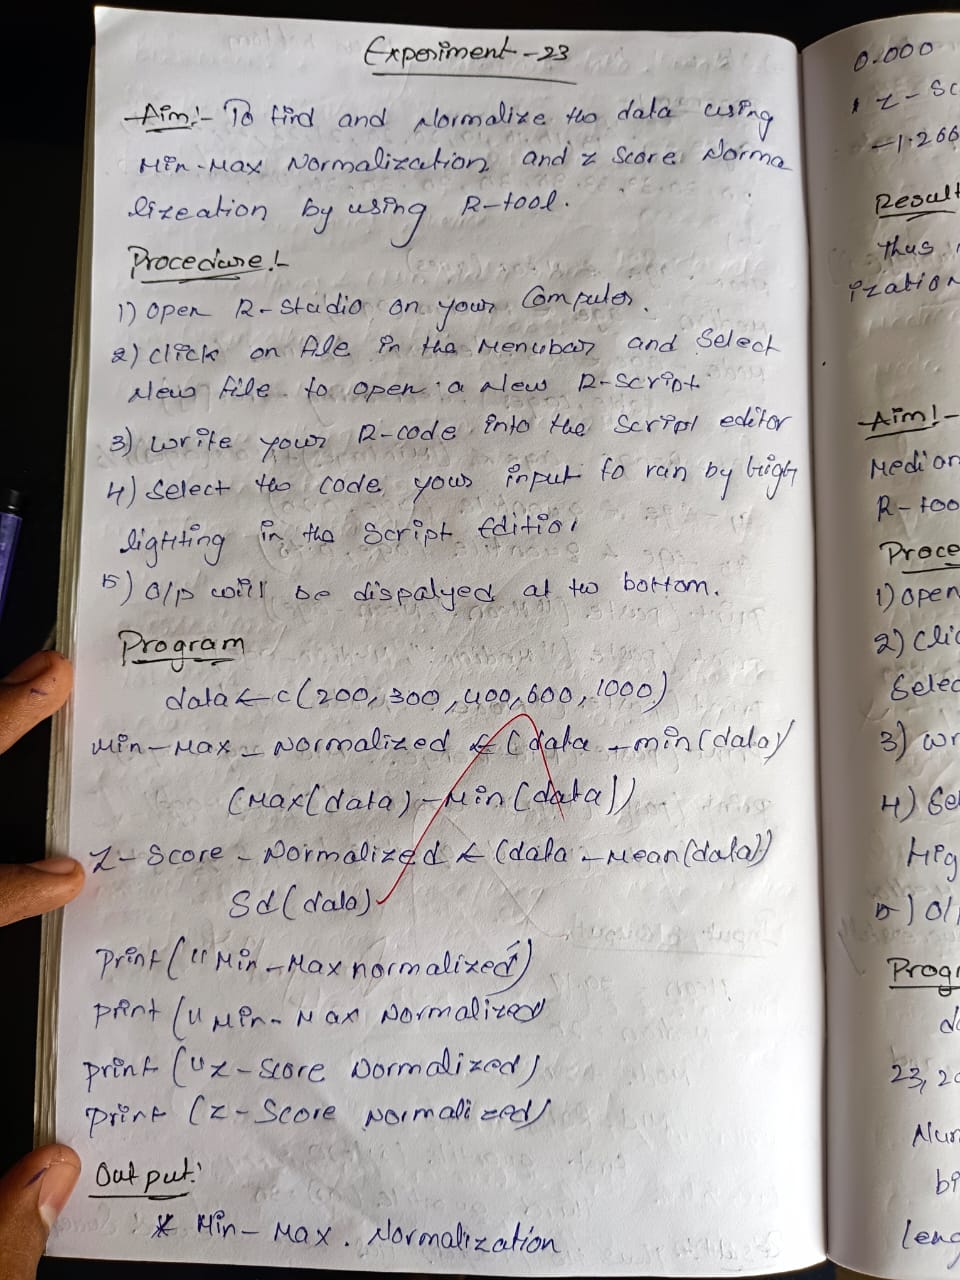 Experiment-23
Aim:- To find and Normalize the data using
Min-Max Normalization and z Score Norma
lization by using R-tool.
Procedure:-
1) Open R-Studio on your Computer.
2) click on file in the Menubar and Select
New file to open a New R-Script
3) write your R-code into the Script editor
4) Select the code your input to run by high
lighting in the Script Edition
5) O/p will be dispalyed at the bottom.
Program
data <- c(200, 300, 400, 600, 1000)
Min-Max - Normalized <- (data - min(data)/
(Max(data) - Min(data))
Z-Score - Normalized <- (data - Mean(data))
Sd(data)
Print("Min-Max normalized")
print ("Min-Max Normalized
print ("z-Score Normalized)
Print (z-Score Normalized)
Output:
* Min-Max. Normalization
0.000
z-Sc
-1.266
Result
Thus
ization
Aim:-
Median
R-too
Proce
1) open
2) Clic
Selec
3) wr
4) Se
Hig
5) O/
Progr
da
23, 2
Num
bi
leng